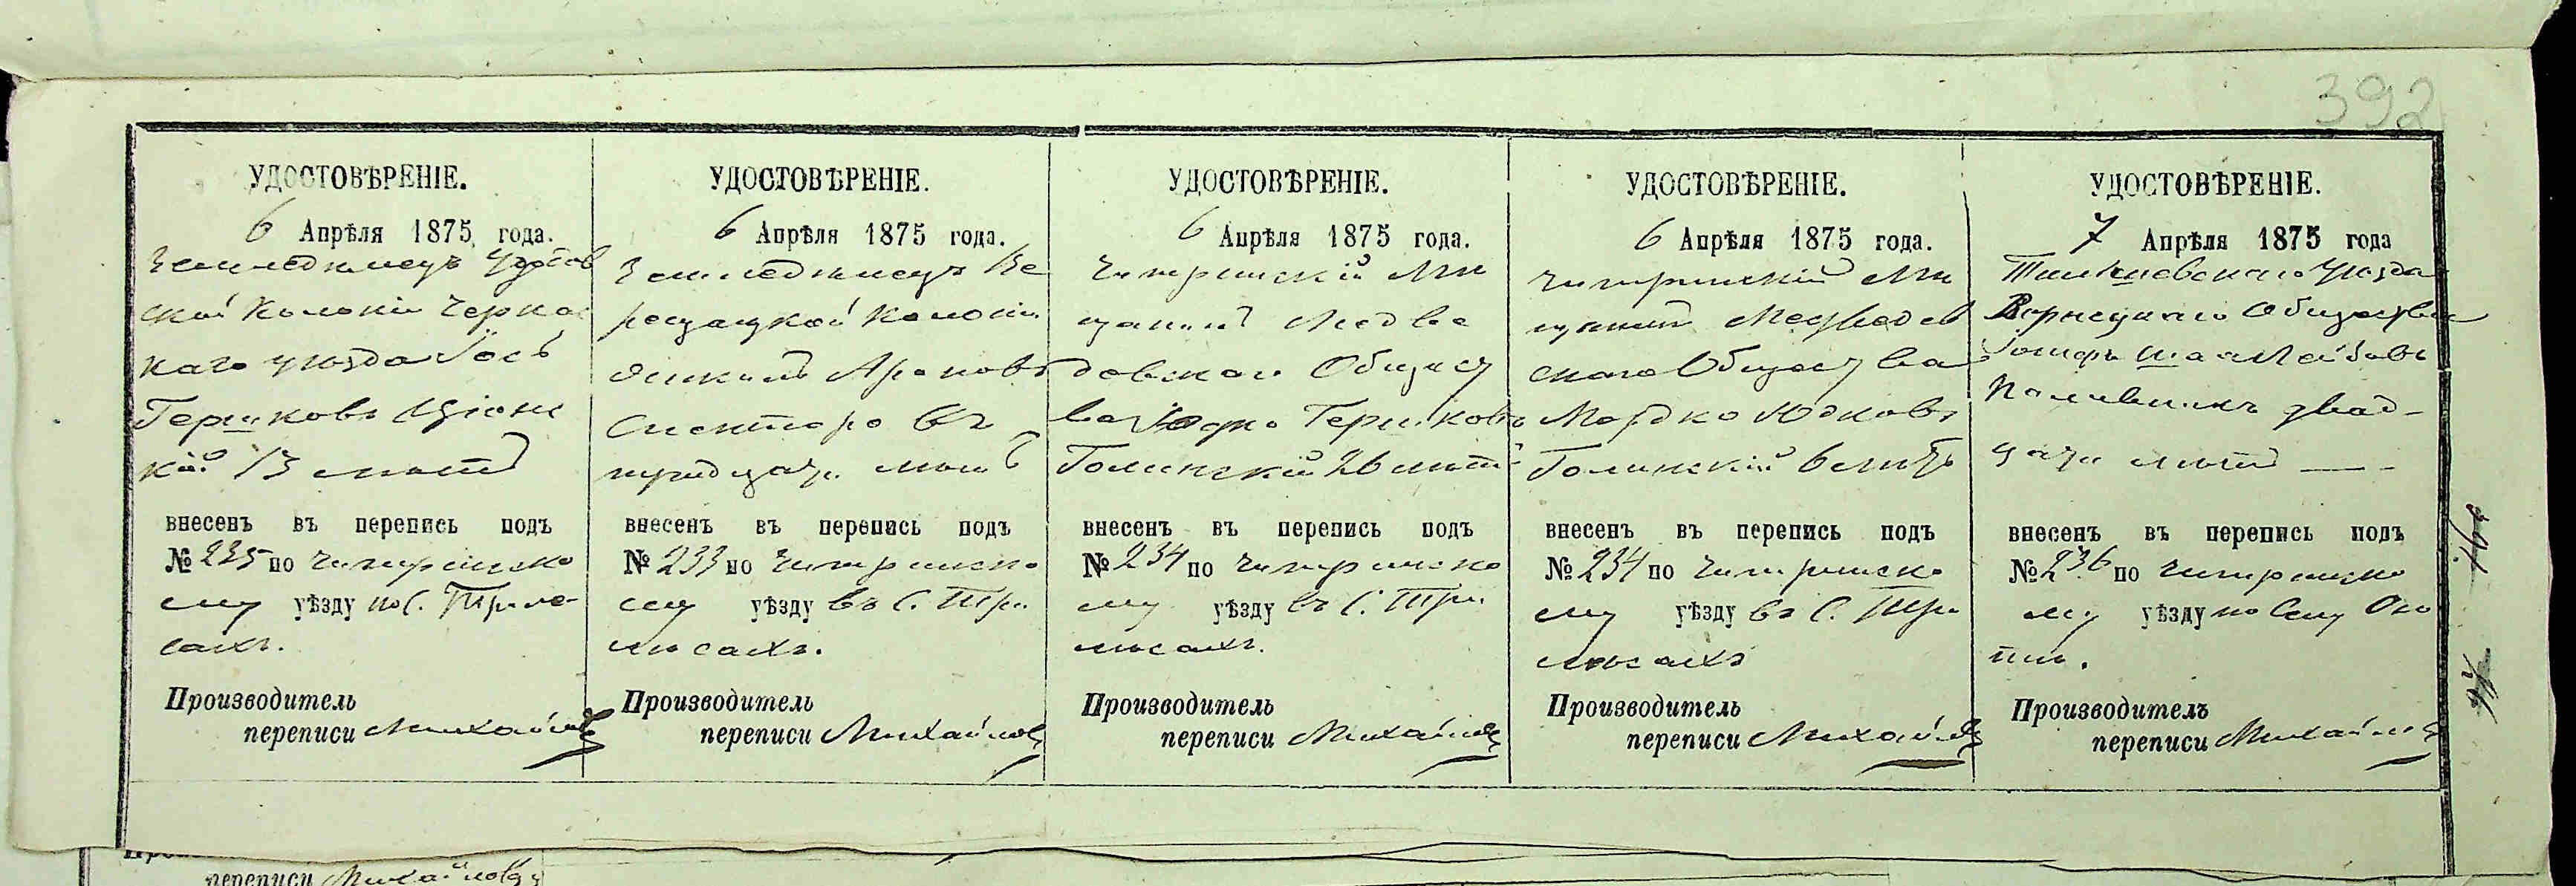 392
УДОСТОВѢРЕНІЕ.
6 Апрѣля 1875 года.
Земледѣлецъ
ской Колоніи Черкас
каго уѣзда Іось
Гершковъ
кій 13 лѣтъ
внесенъ въ перепись подъ
№ 235 по Чигиринско
му уѣзду по С. Трилѣ-
сахъ.
Производитель
переписи Михайловъ
УДОСТОВѢРЕНІЕ.
6 Апрѣля 1875 года.
Земледѣлецъ Ве
рещацкой Колоніи
Ароновъ
Спекторъ
тридцати лѣтъ
внесенъ въ перепись подъ
№ 233 по Чигиринско
му уѣзду въ С. Три
лѣсахъ.
Производитель
переписи Михайловъ
УДОСТОВѢРЕНІЕ.
6 Апрѣля 1875 года.
Чигиринскій Мѣ
щанинъ Медве
довскаго Общест
ва Юдко Гершковъ
Голинскій 26 лѣтъ
внесенъ въ перепись подъ
№ 234 по Чигиринско
му уѣзду въ С. Три
лѣсахъ.
Производитель
переписи Михайловъ
УДОСТОВѢРЕНІЕ.
6 Апрѣля 1875 года.
Чигиринскій Мѣ
щанинъ Медведов
скаго Общества
Мордко Юдковъ
Голинскій 6 лѣтъ
внесенъ въ перепись подъ
№ 234 по Чигиринско
му уѣзду въ С. Три
лѣсахъ
Производитель
переписи Михайловъ
УДОСТОВѢРЕНІЕ.
7 Апрѣля 1875 года
уѣзда
Общества
двад-
цати лѣтъ
внесенъ въ перепись подъ
№ 236 по Чигиринско
му уѣзду по Селу Осо
тѣ.
Производитель
переписи Михайловъ
переписи Михайловъ